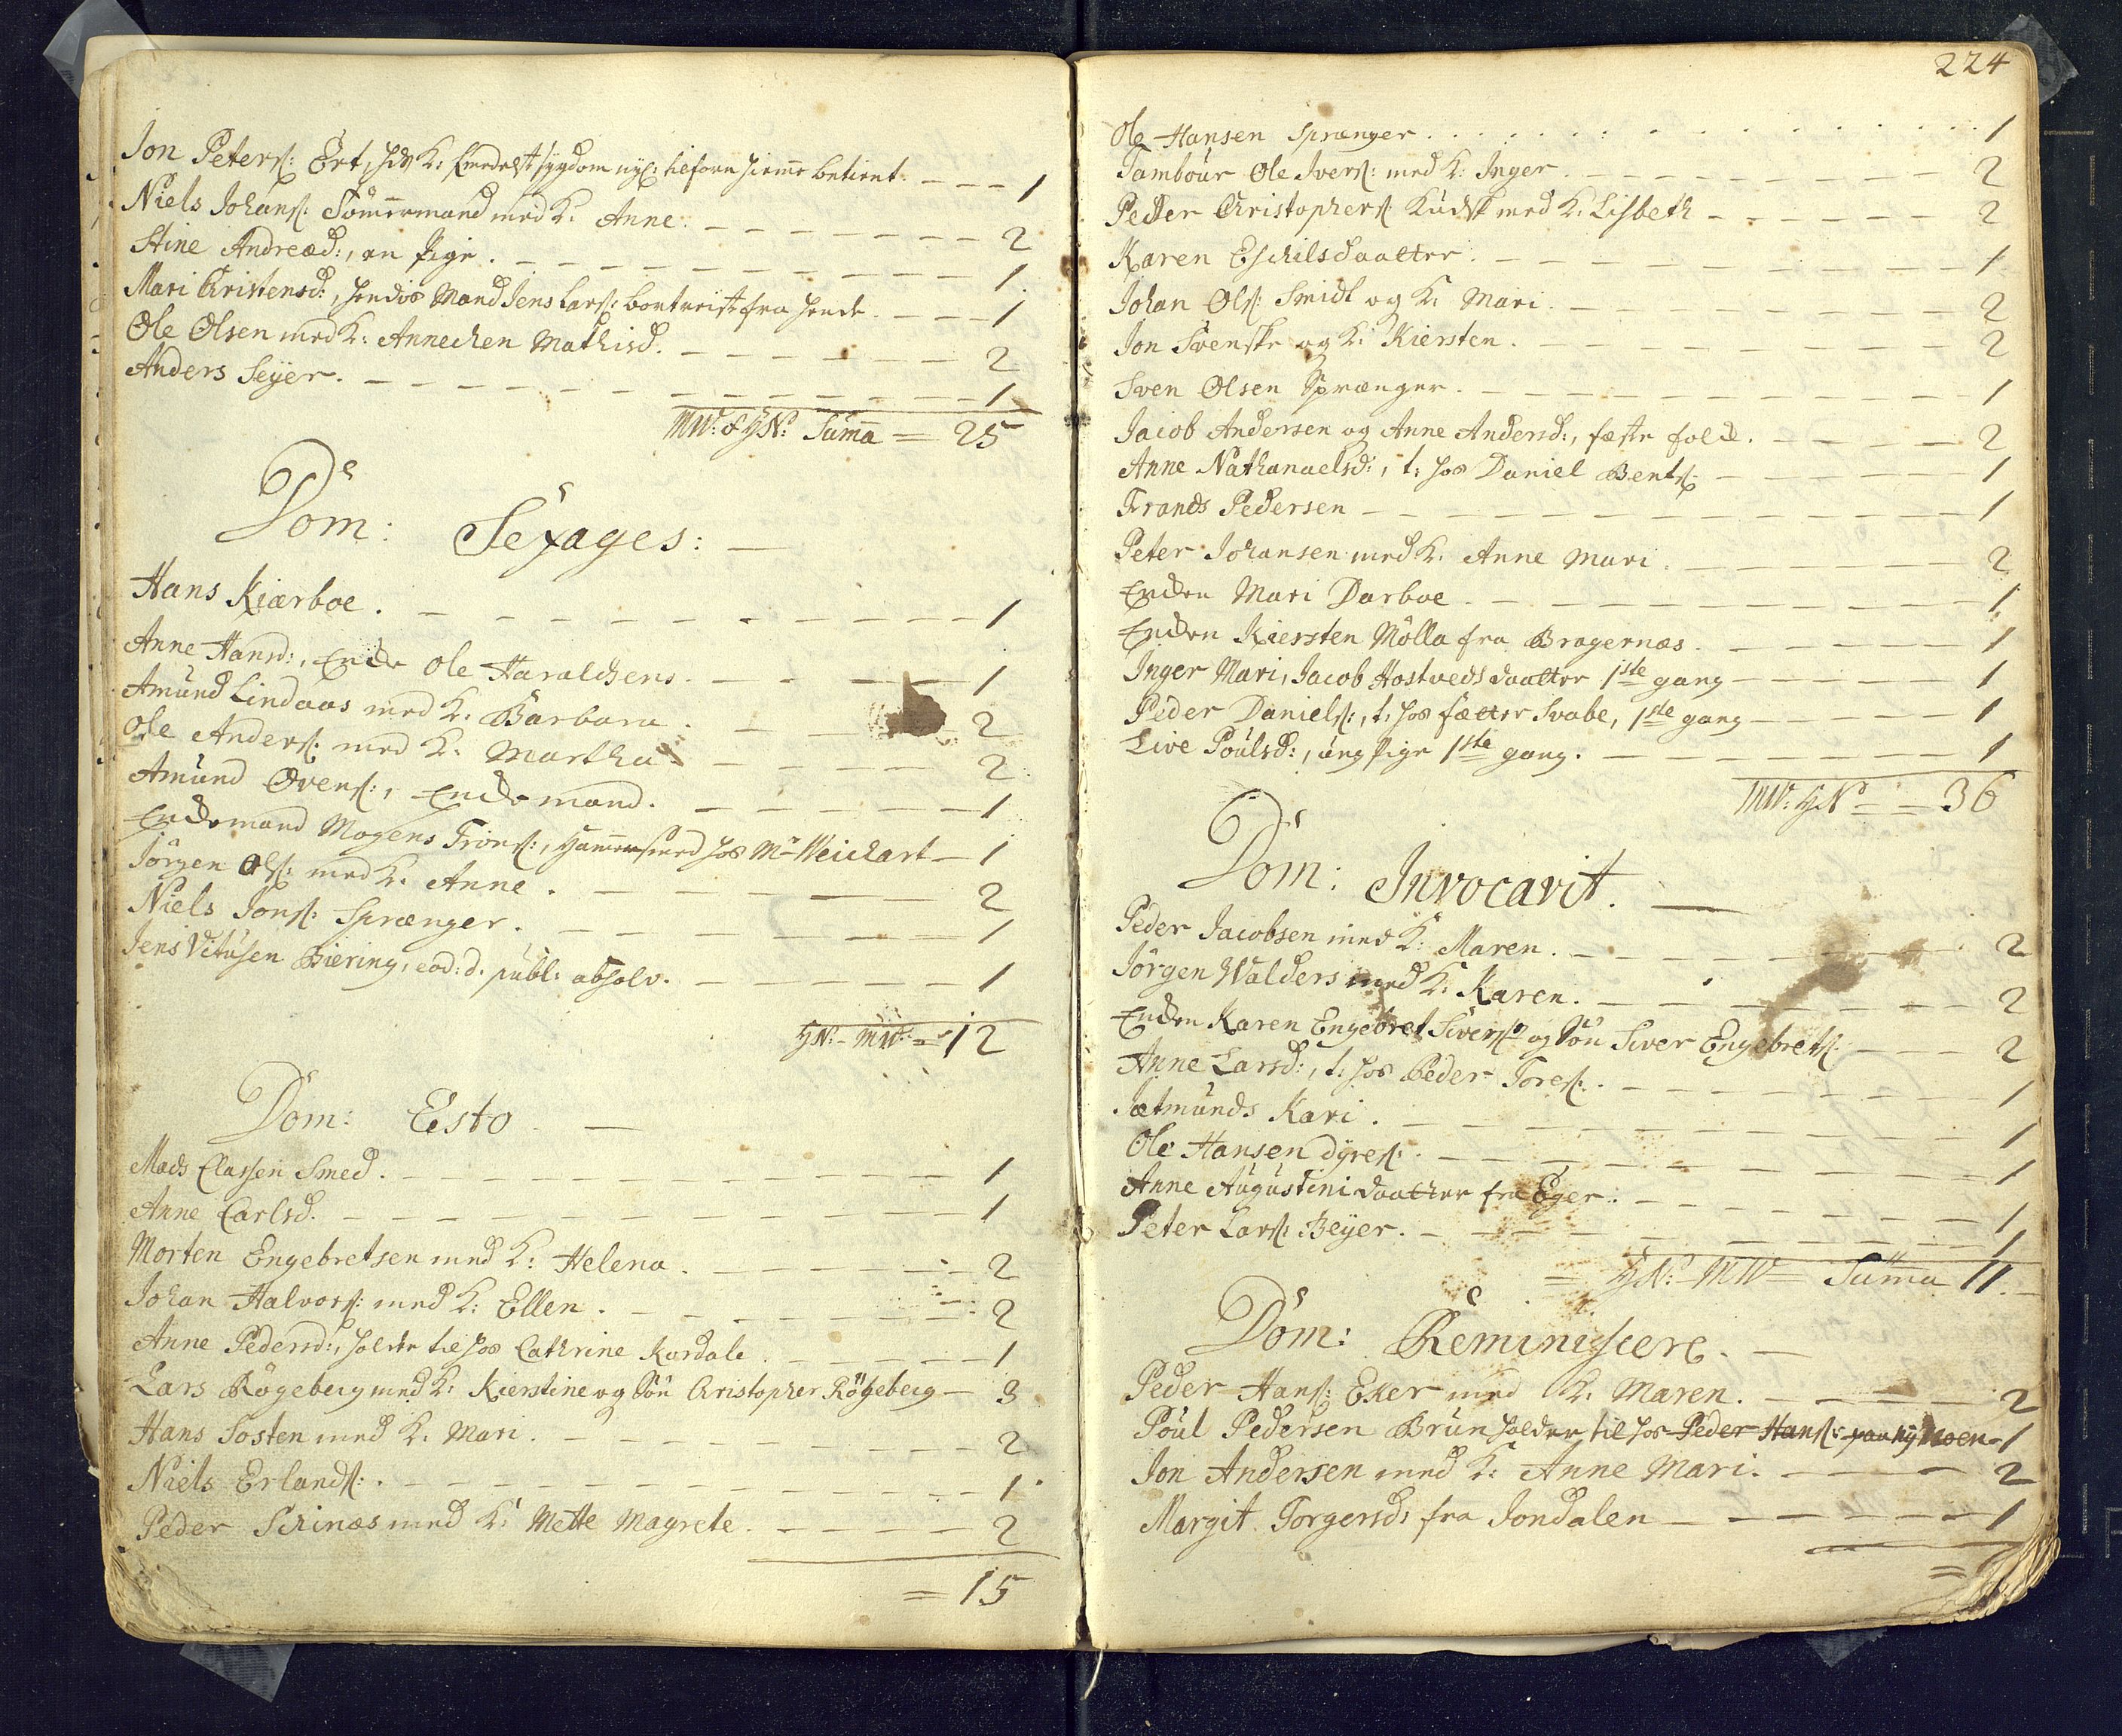 Jon Peters: Ört, hds K: formedelst sygdom nyl: tilforn hiemme betient. – – – 1
Niels Johans: Tömmermand med K: Anne. – – – 2
Stine Andreæd:, en Pige. – – – 1
Mari Christensd:, hendes Mand Jens Lars: bortreist fra hende. – – – 1
Ole Olsen med K: Annechen Mathisd. – – – 2
Anders Seyer. – – – 1
MW: & HN: Suma = 25
Dom: Sexages: –
Hans Kiærboe. – – – 1
Anne Hansd:, Encke Ole Haraldsens. – – – 1
Amund Lindaas med K: Barbara. – – – 2
Ole Anders: med K: Martha. – – – 2
Amund Ovens:, Enckemand. – – – 1
Enckemand Mogens Trons:, Hammersmed hos Mr Weichart – 1
Jörgen Ols: med K: Anne. – – – 2
Niels Jons: Sprænger. – – – 1
Jens Vitusen Biering, eod: d. publ: absolv. – – – 1
HN: – MW: = 12
Dom: Esto. –
Mads Classen Smed. – – – 1
Anne Carlsd. – – – 1
Morten Engebretsen med K: Helena. – – – 2
Johan Halvors: med K: Ellen. – – – 2
Anne Pedersd:, holder til hos Cathrine Kordale. – – – 1
Lars Rögeberg med K: Kierstine og Sön Christopher Rögeberg – 3
Hans Sosten med K: Mari. – – – 2
Niels Erlands:. – – – 1
Peder Schinæs med K: Mette Magrete. – – – 2
= 15
224
Ole Hansen Sprænger. . . . 1
Tambour Ole Ivers: med K: Inger. – – – 2
Peder Christophers: Kudsk med K: Lisbeth – – – 2
Karen Eschilsdaatter. – – – 1
Johan Ols: Smidt og K: Mari. – – – 2
Jon Svenske og K: Kiersten. – – – 2
Sven Olsen Sprænger. – – – 1
Jacob Andersen og Anne Andersd:, fæste folck. – – – 2
Anne Nathanaelsd:, t: hos Daniel Bents: – – – 1
Frands Pedersen – – – 1
Peter Johansen med K: Anne Mari. – – – 2
Encken Mari Darboe. – – – 1
Encken Kiersten Mölla fra Bragernæs. – – – 1
Inger Mari, Jacob Hostveds daatter 1ste gang – – – 1
Peder Daniels:, t: hos fætter Svabe, 1ste gang – – – 1
Live Poulsd:, ung Pige 1ste gang. – – – 1
MW: HN = = 36
Dom: Invocavit. –
Peder Jacobsen med K: Maren. – – – 2
Jörgen Walders med K: Karen. – – – 2
Encken Karen Engebret Sivers: og Sön Siver Engebrets: – – – 2
Anne Larsd:, t: hos Peder Tores:. – – – 1
Jætmunds Kari. – – – 1
Ole Hansen Dyres:. – – – 1
Anne Augustini daatter fra Eger. – – – 1
Peter Lars: Beyer. – – – 1
= HN: – MW = Suma 11. –
Dom: Reminiscere. –
Peder Hans: Eker med K: Maren. – – – 2
Poul Pedersen Brun holder til hos Peder Hans: paa Nymoen – 1
Jon Andersen med K: Anne Mari. – – – 2
Margit Torgersd: fra Jondalen – – – 1
=